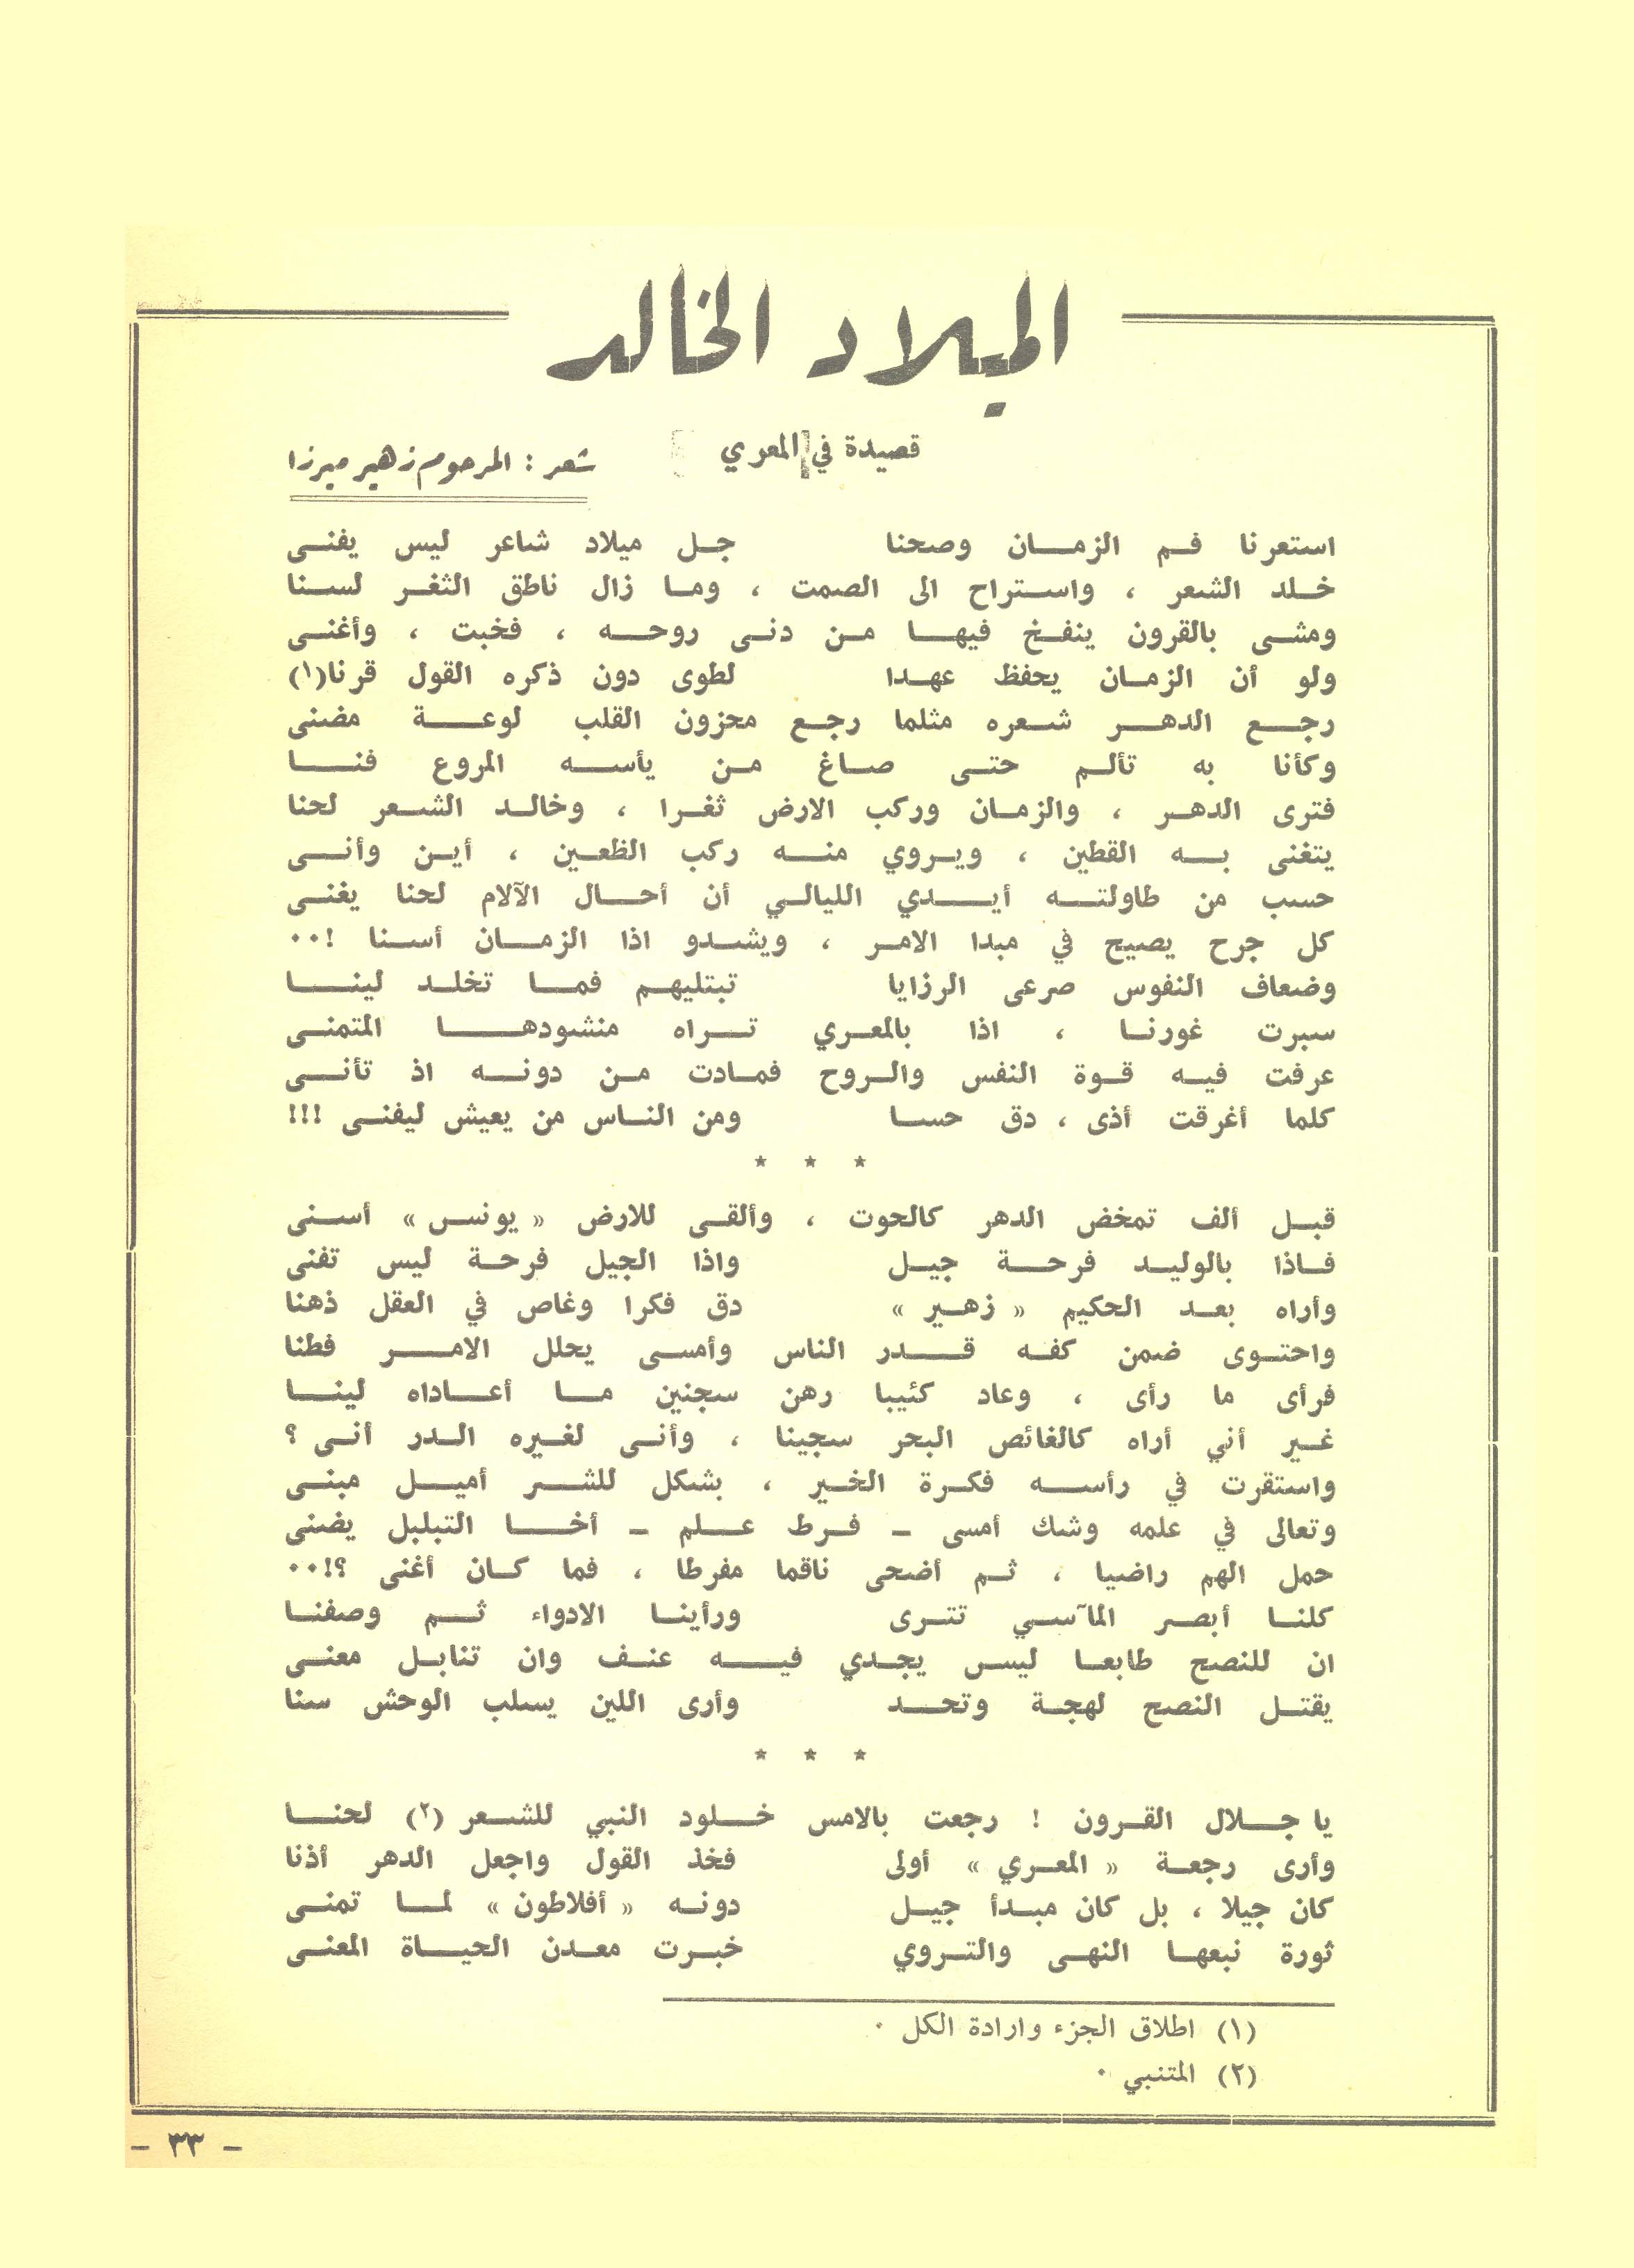 الميلاد الخالد
قصيدة في المعري
شعر : المرحوم زهير ميرزا
استعرنا فم الزمان وصحنا جل ميلاد شاعر ليس يفنى
خلد الشعر ، واستراح الى الصمت ، وما زال ناطق الثغر لسنا
ومشى بالقرون ينفخ فيها من دنى روحه ، فخبت ، وأغنى
ولو أن الزمان يحفظ عهدا لطوى دون ذكره القول قرنا(١)
رجع الدهر شعره مثلما رجع محزون القلب لوعة مضنى
وكأنا به تألم حتى صاغ من يأسه المروع فنا
فترى الدهر ، والزمان وركب الارض ثغرا ، وخالد الشعر لحنا
يتغنى به القطين ، ويروي منه ركب الظعين ، أين وأنى
حسب من طاولته أيدي الليالي أن أحال الآلام لحنا يغنى
كل جرح يصيح في مبدا الامر ، ويشدو اذا الزمان أسنا !٠٠
وضعاف النفوس صرعى الرزايا تبتليهم فما تخلد لينا
سبرت غورنا ، اذا بالمعري تراه منشودها المتمنى
عرفت فيه قوة النفس والروح فمادت من دونه اذ تأنى
كلما أغرقت أذى ، دق حسا ومن الناس من يعيش ليفنى !!!
* * *
قبل ألف تمخض الدهر كالحوت ، وألقى للارض « يونس » أسنى
فاذا بالوليد فرحة جيل واذا الجيل فرحة ليس تفنى
وأراه بعد الحكيم « زهير » دق فكرا وغاص في العقل ذهنا
واحتوى ضمن كفه قدر الناس وأمسى يحلل الامر فطنا
فرأى ما رأى ، وعاد كئيبا رهن سجنين ما أعاداه لينا
غير أني أراه كالغائص البحر سجينا ، وأنى لغيره الدر أنى ؟
واستقرت في رأسه فكرة الخير ، بشكل للشر أميل مبنى
وتعالى في علمه وشك أمسى - فرط علم - أخا التبلبل يضنى
حمل الهم راضيا ، ثم أضحى ناقما مفرطا ، فما كان أغنى ؟!٠٠
كلنا أبصر المآسي تترى ورأينا الادواء ثم وصفنا
ان للنصح طابعا ليس يجدي فيه عنف وان تنابل معنى
يقتل النصح لهجة وتحد وأرى اللين يسلب الوحش سنا
* * *
يا جلال القرون ! رجعت بالامس خلود النبي للشعر (٢) لحنا
وأرى رجعة « المعري » أولى فخذ القول واجعل الدهر أذنا
كان جيلا ، بل كان مبدأ جيل دونه « أفلاطون » لما تمنى
ثورة نبعها النهى والتروي خبرت معدن الحياة المعنى
(١) اطلاق الجزء وارادة الكل ٠
(٢) المتنبي ٠
- ٣٣ -